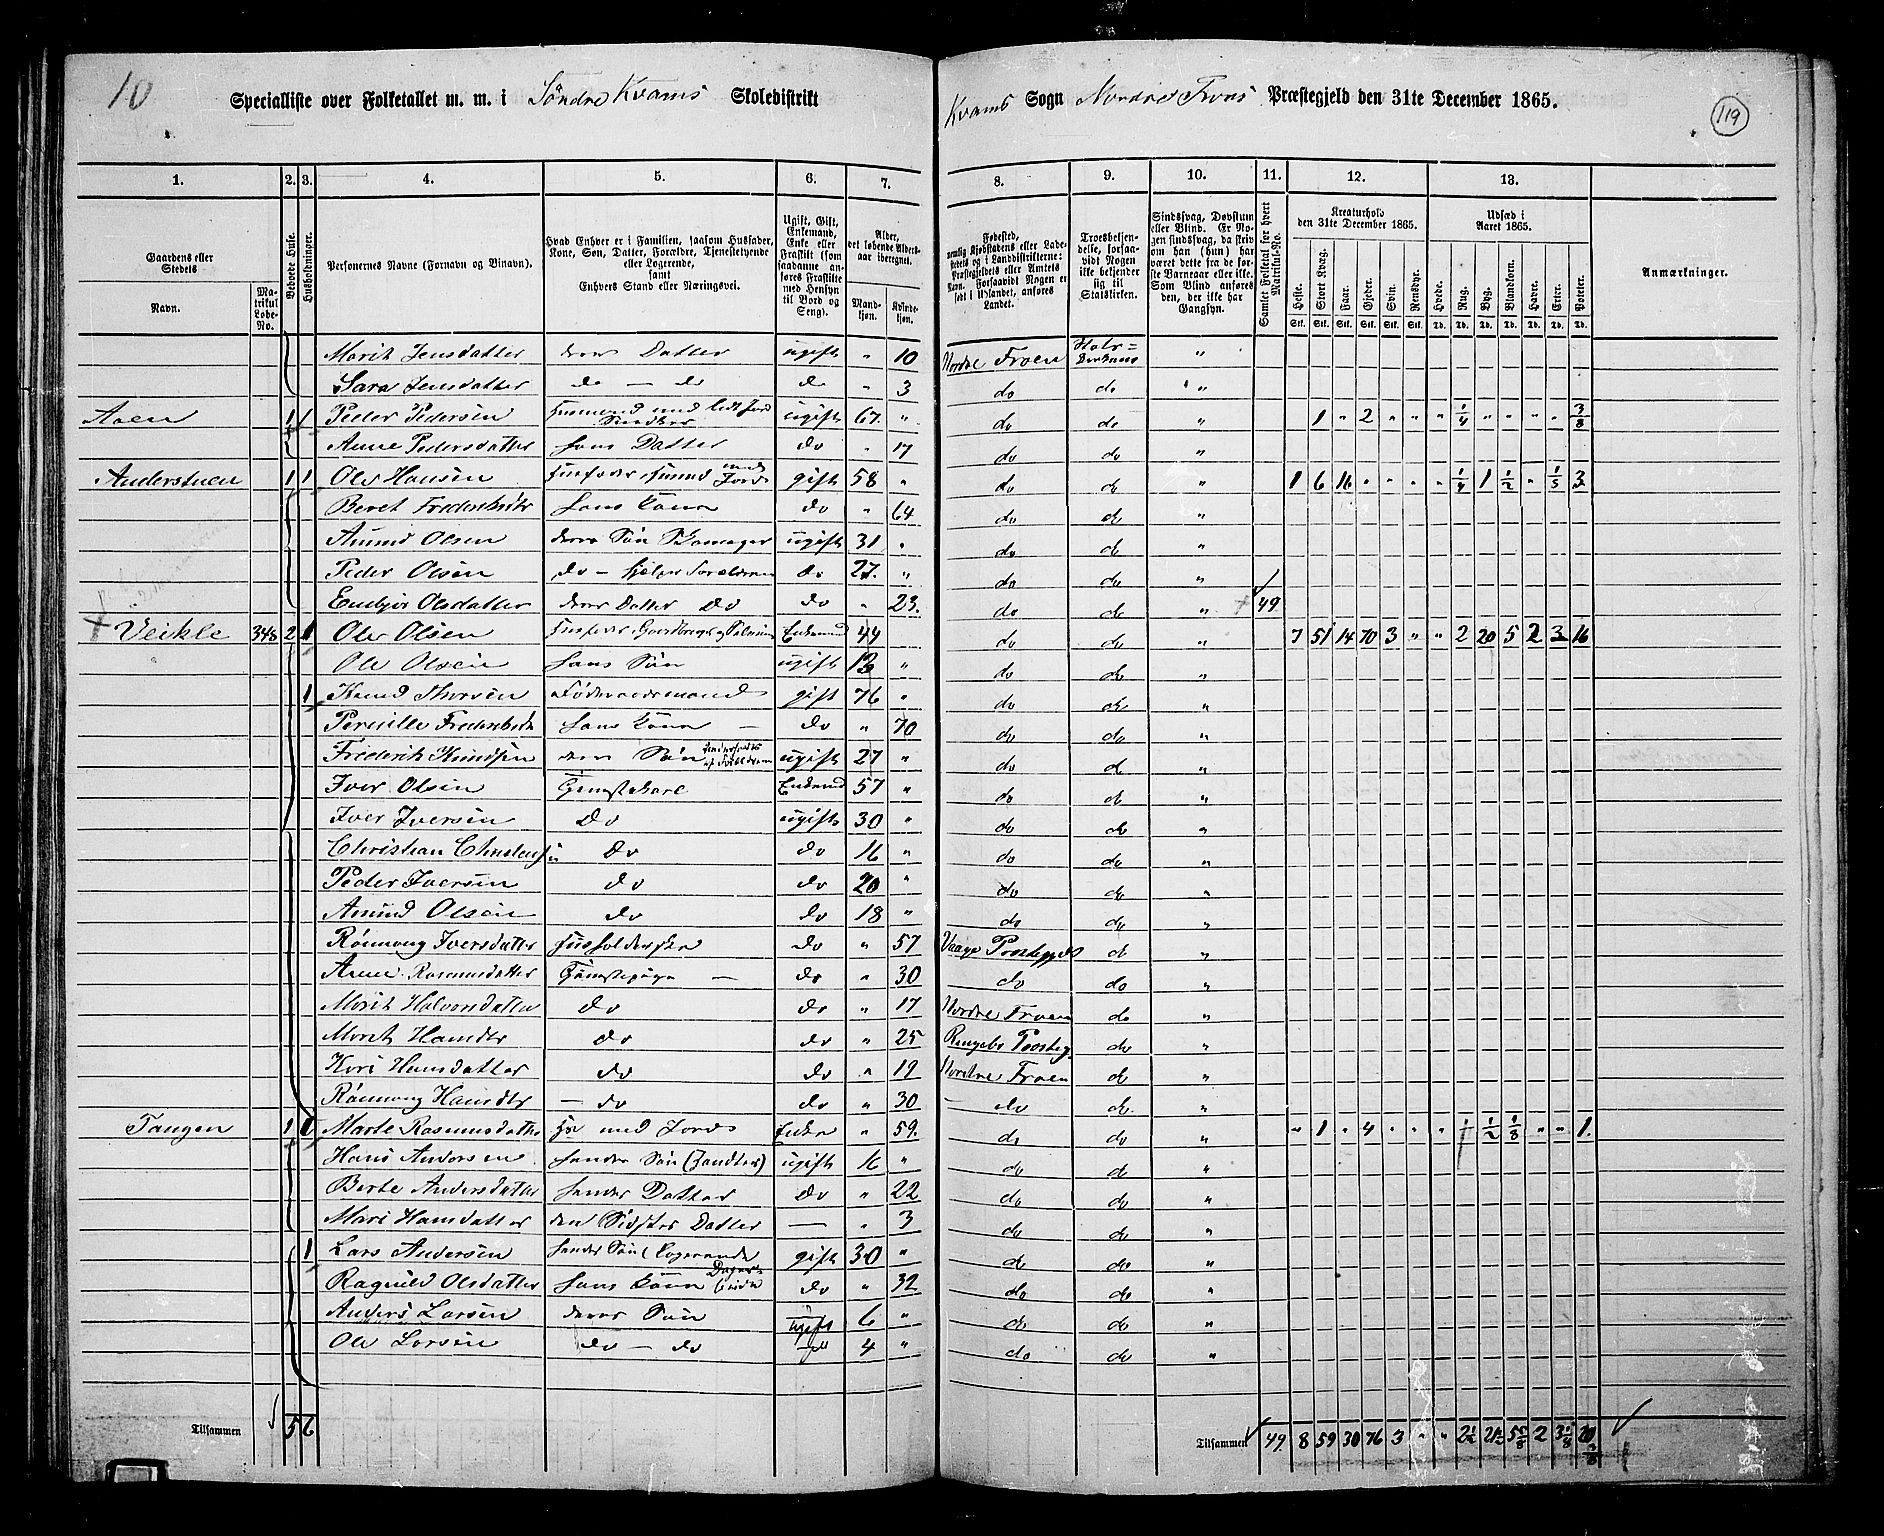 10
Specialliste over Folketallet m. m. i Søndre Kvams Skoledistrikt
Kvams Sogn Nordre Frons Præstegjeld den 31te December 1865.
119
1. 2. 3. 4. 5. 6. 7. 8. 9. 10. 11. 12. 13.
Gaardens eller Stedets
Navn.
Matrikul Løbe-No.
Beboede Huse.
Husholdninger.
Personernes Navne (Fornavn og Binavn).
Hvad Enhver er i Familien, saasom Husfader, Kone, Søn, Datter, Forældre, Tjenestetyende eller Logerende, samt Enhvers Stand eller Næringsvei.
Ugift, Gift, Enkemand, Enke eller Fraskilt (som saadanne anføres Fraskilte med Hensyn til Bord og Seng).
Alder, det løbende Alders-aar iberegnet.
Mandkjøn. Kvindekjøn.
Fødested,
Troesbekjendelse, forsaavidt Nogen ikke bekjender sig til Statskirken.
Sindssvag, Døvstum eller Blind. Er Nogen sindssvag, da skrives om han (hun) har været dette fra de første Barneaar eller ikke. Som Blind anføres den, der ikke har Gangsyn.
Samlet Folketal for hvert Matrikul-No.
Kreaturhold den 31te December 1865.
Heste. Stort Kvæg. Faar. Gjeder. Svin. Rensdyr.
Udsæd i Aaret 1865.
Hvede. Rug. Byg. Blandkorn. Havre. Erter. Poteter.
Stk. Stk. Stk. Stk. Stk. Stk. Td. Td. Td. Td. Td. Td. Td.
Anmærkninger.
Marit Jensdatter deres Datter ugift " 10 Nordre Froen "
Sara Jensdatter do — do do " 3 do do "
Aaen 1 1 Peder Pedersen ugift 67. " do do " 1 " 2 " " " 1/4 " " " " 3/8
Anne Pedersdatter hans Datter do " 17 do do "
Anderstuen 1 1 Ole Hansen gift 58 " do do " 1 6 16 " " " " 1/4 1 1/2 " 1/5 3
Beret hans Kone do " 64 do do "
Amund Olsen deres Søn ugift 31 " do do "
Peder Olsen do — do 27. " do do "
Olsdatter deres Datter do do " 23. do do " 49
Veikle 348 2 1 Ole Olsen 44 " do do " 7 51 14 70 3 " " 2 20 5 2 3 16
Ole Olsen hans Søn ugift 13 " do do "
1 Knud Thorsen Føderaadsmand gift 76 " do do "
Pernille hans Kone — do " 70 do do "
Frederik Knudsen Søn ugift 27 " do do "
Iver Olsen Tjenestekarl 57 " do do "
Iver Iversen do ugift 30 " do do "
Christian Christensen do do 16 " do do "
Peder Iversen do do 20 " do do "
Amund Olsen do do 18 " do do "
Rønnoug Iversdatter Husholderske do " 57 do
Anne Rasmusdatter Tjenestepige — do " 30 do do "
Marit Halvorsdatter do do " 17 Nordre Froen do "
Marit do do " 25 do "
Kari Hansdatter do do " 19 Nordre Froen do "
Rønnoug — do do " 30 — do do "
Tangen 1 1 Marte Rasmusdatter med Jord Enke " 59. do do " " 1 " 4 " " " 1/2 1/8 " " 1.
Hans Andersen hendes Søn ugift 16 " do do "
Berte Andersdatter hendes Datter do " 22 do do "
Mari Hansdatter Datter — " 3 do do "
1 Lars Andersen hendes Søn Logerende gift 30 " do do "
Ragnild Olsdatter hans Kone do " 32 do do "
Anders Larsen deres Søn ugift 6 " do do "
Ole Larsen do — do do 4 " do do "
Tilsammen 5 6
Tilsammen 49 8 59 30 76 3 " " 2 1/2 21 1/2 5 5/8 2 20 3/8